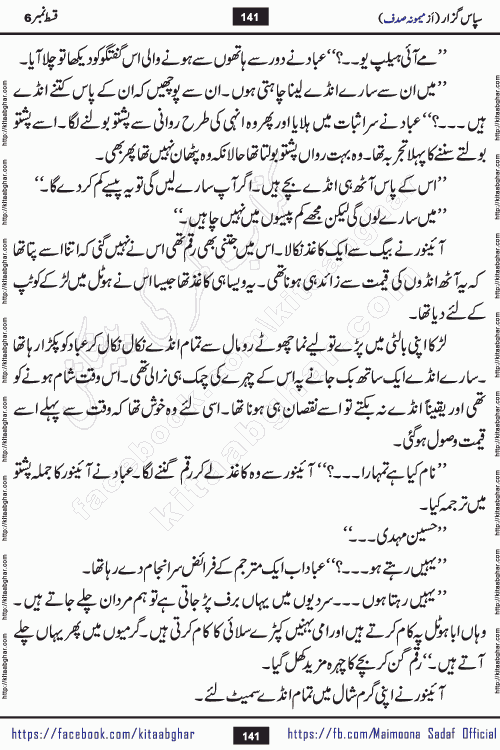 سپاس گزار (از میمونہ صدف)
141
قسط نمبر 6
’’مے آئی ہیلپ یو۔۔؟‘‘ عباد نے دور سے ہاتھوں سے ہونے والی اس گفتگو کو دیکھا تو چلا آیا۔
’’میں ان سے سارے انڈے لینا چاہتی ہوں۔ ان سے پوچھیں کہ ان کے پاس کتنے انڈے
ہیں ۔۔۔؟‘‘ عباد نے سر اثبات میں ہلایا اور پھر وہ انہی کی طرح روانی سے پشتو بولنے لگا۔ اسے پشتو
بولتے سننے کا پہلا تجربہ تھا۔ وہ بہت رواں پشتو بولتا تھا حالانکہ وہ پٹھان نہیں تھا پھر بھی۔
’’اس کے پاس آٹھ ہی انڈے بچے ہیں۔ اگر آپ سارے لیں گی تو یہ پیسے کم کر دے گا۔‘‘
’’میں سارے لوں گی لیکن مجھے کم پیسوں میں نہیں چاہیں۔‘‘
آئینور نے بیگ سے ایک کاغذ نکالا۔ اس میں جتنی بھی رقم تھی اس نے نہیں گنی کہ اتنا اسے پتا تھا
کہ یہ آٹھ انڈوں کی قیمت سے زائد ہی ہونا تھی۔ یہ ویسا ہی کاغذ تھا جیسا اس نے ہوٹل میں لڑکے کو ٹپ
کے لئے دیا تھا۔
لڑکا اپنی بالٹی میں پڑے تولیے نما چھوٹے رومال سے تمام انڈے نکال نکال کر عباد کو پکڑا رہا تھا
۔ سارے انڈے ایک ساتھ بک جانے پہ اس کے چہرے کی چمک ہی نرالی تھی۔ اس وقت شام ہونے کو
تھی اور یقیناً انڈے نہ بکتے تو اسے نقصان ہی ہونا تھا۔ اسی لئے وہ خوش تھا کہ وقت سے پہلے اسے
قیمت وصول ہو گئی۔
’’نام کیا ہے تمہارا ۔۔۔؟‘‘ آئینور سے وہ کاغذ لے کر رقم گننے لگا۔ عباد نے آئینور کا جملہ پشتو
میں ترجمہ کیا۔
’’حسین مہدی۔۔۔‘‘
’’یہیں رہتے ہو۔۔۔؟‘‘ عباد اب ایک مترجم کے فرائض سرانجام دے رہا تھا۔
’’یہیں رہتا ہوں ۔۔۔ سردیوں میں یہاں برف پڑ جاتی ہے تو ہم مردان چلے جاتے ہیں ۔
وہاں ابا ہوٹل پہ کام کرتے ہیں اور امی بہنیں کپڑے سلائی کا کام کرتی ہیں۔ گرمیوں میں پھر یہاں چلے
آتے ہیں۔‘‘ رقم گن کر بچے کا چہرہ مزید کھل گیا۔
آئینور نے اپنی گرم شال میں تمام انڈے سمیٹ لئے۔
https://facebook.com/kitaabghar
141
https://fb.com/Maimoona Sadaf Official
http://kitaabghar.com